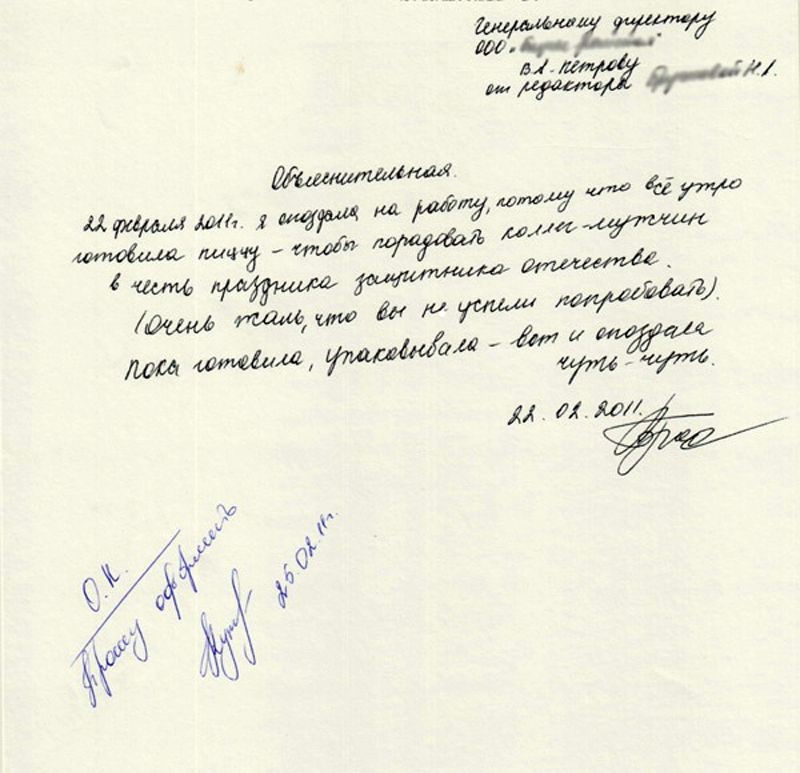 Генеральному директору
ООО "
В.А. Петрову
от редактора Н.А.
Объяснительная.
22 февраля 2011г. я опоздала на работу, потому что всё утро
готовила пиццу – чтобы порадовать коллег-мужчин
в честь праздника защитника отечества.
(Очень жаль, что вы не успели попробовать).
Пока готовила, упаковывала – вот и опоздала
чуть-чуть.
22.02.2011.
О.К.
Прошу оформить
25.02.11г.